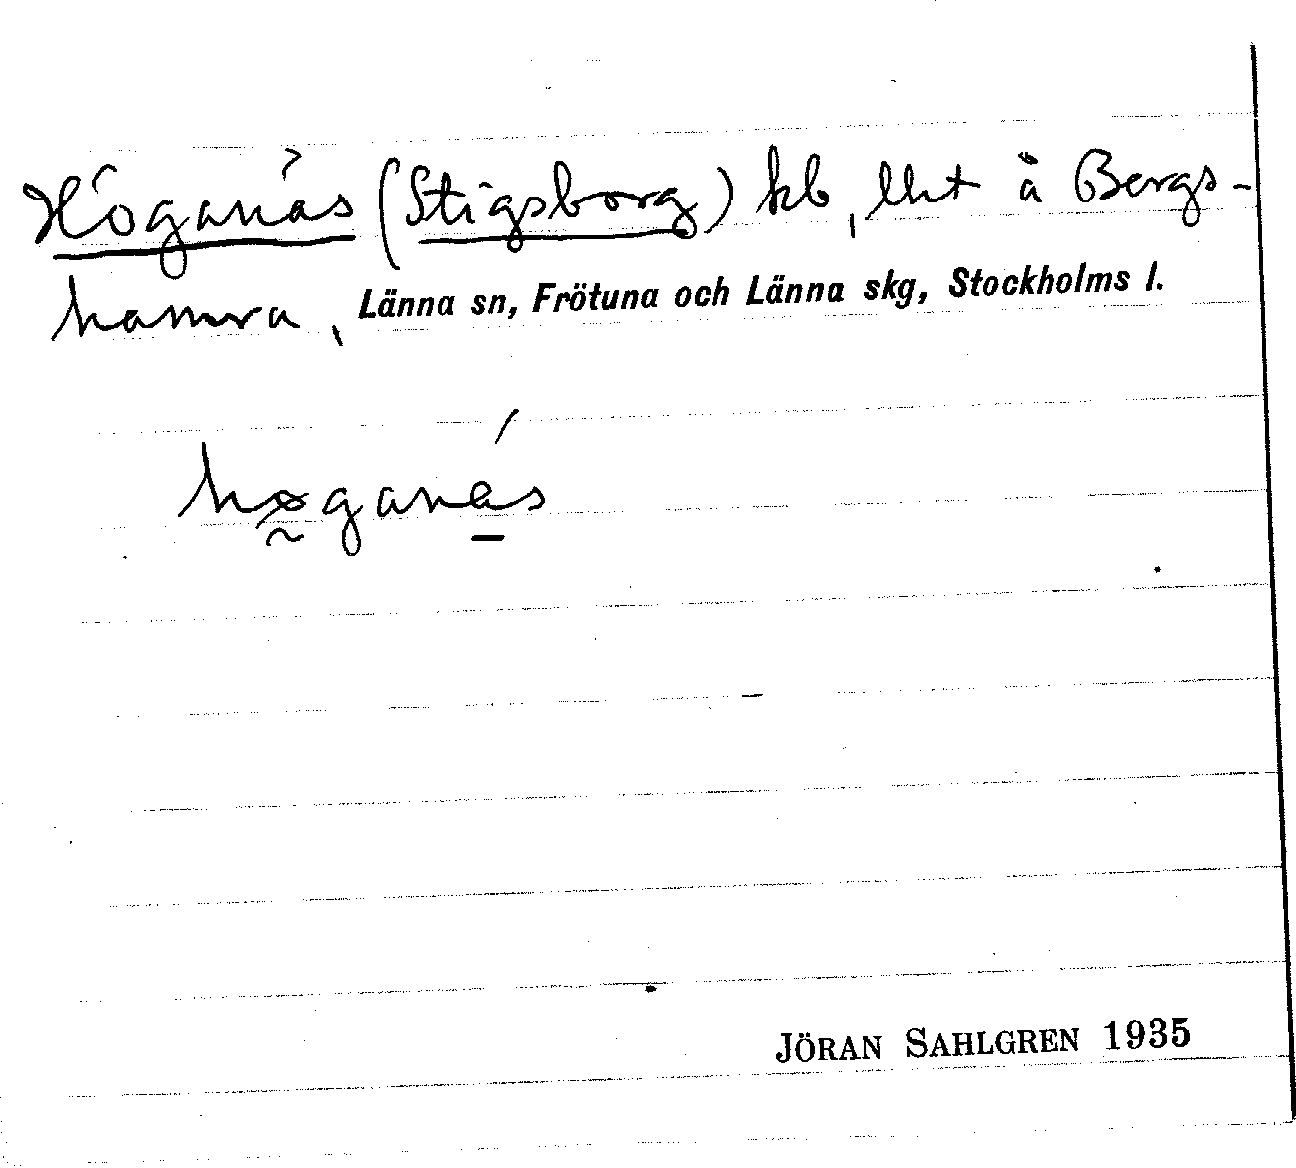 Höganäs (Stigsborg) kb, lht å Bergs-
hamra, Länna sn, Frötuna och Länna skg, Stockholms l.
høganä́s
JÖRAN SAHLGREN 1935